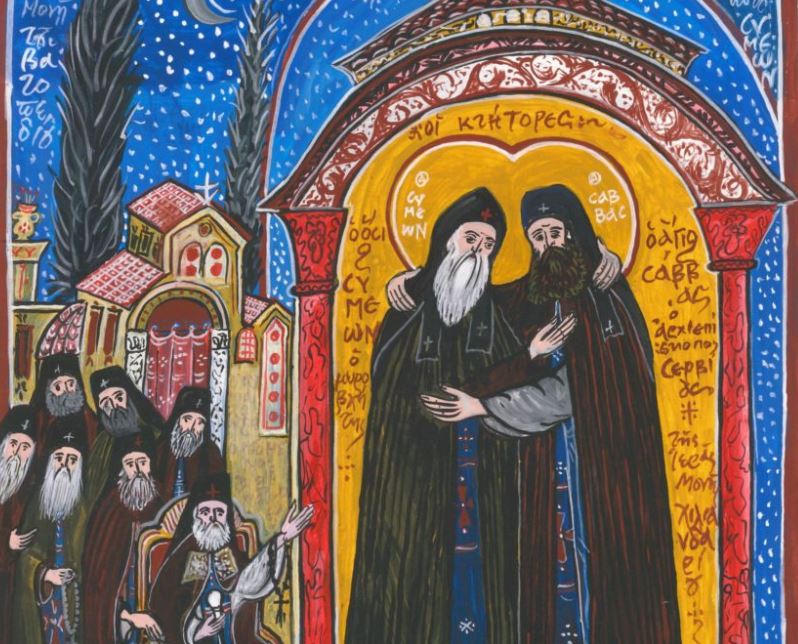 Μονή
τȣ͂
Βα
το
πεδ
ίȣ
ΣΥΜΕΩΝ
ΟΙ ΚΤΗΤΟΡΕΣ
Ο
СΥ
ΜΕ
ΩΝ
Ο
СΑΒ
ΒΑС
ὁ ΟСΙ
ος
СΥ
ΜΕ
ΩΝ
ὁ
μυρο
βλή
της
ὁ ἅγιος
СΑΒΒ
ας
ὁ
ἀρχιεπί
σκοπος
СΕΡΒΙ
ας
τῆς
ἱερᾶς
Μονῆ
χιλια
νδα
ρί
ου